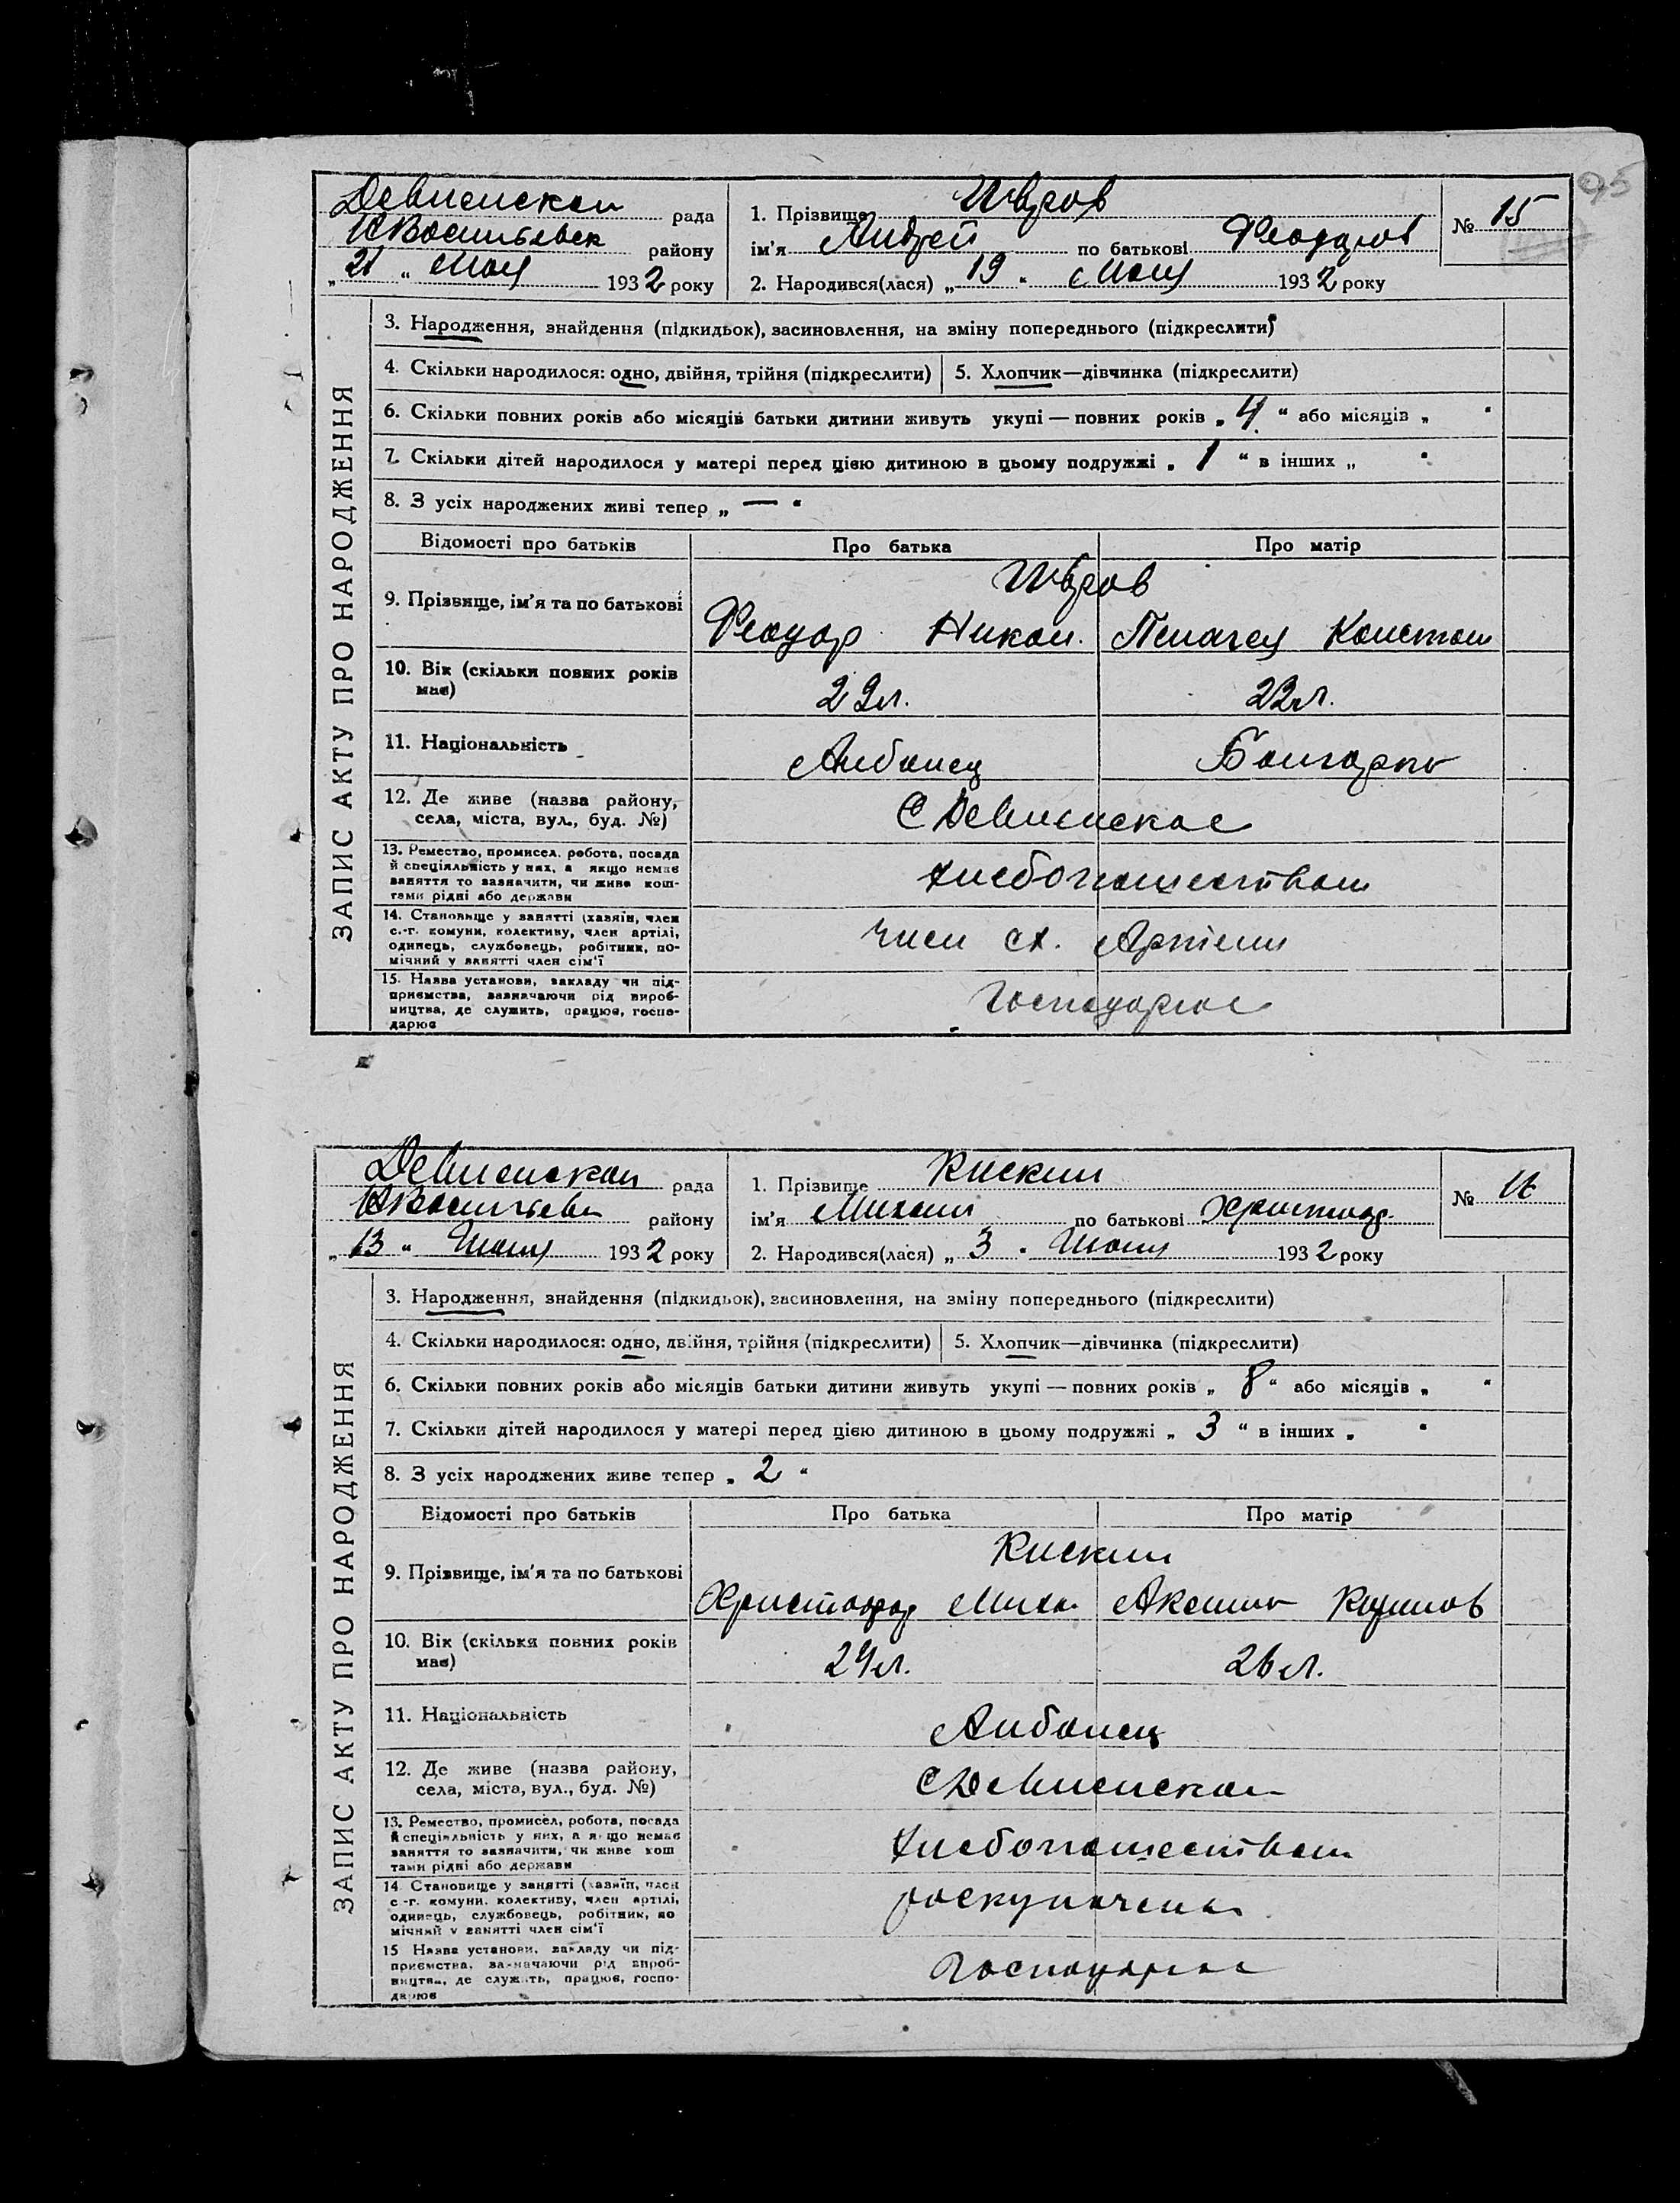 95
Девненская рада
НВасильевск району
„21“ Мая 1932 року
1. Прізвище Шваров
ім'я Андрей по батькові Феодоров
2. Народився(лася) „19“ Мая 1932 року
№ 15
ЗАПИС АКТУ ПРО НАРОДЖЕННЯ
3. Народження, знайдення (підкидьок), засиновлення, на зміну попереднього (підкреслити)
4. Скільки народилося: одно, двійня, трійня (підкреслити) 5. Хлопчик—дівчинка (підкреслити)
6. Скільки повних років або місяців батьки дитини живуть укупі — повних років „4“ або місяців „ “
7. Скільки дітей народилося у матері перед цією дитиною в цьому подружжі „1“ в інших „ “
8. З усіх народжених живі тепер „—“
Відомості про батьків Про батька Про матір
9. Прізвище, ім'я та по батькові
Шваров
Феодор Никол. Пелагея Констан
10. Вік (скільки повних років
має)
29л. 22л.
11. Національність Албанец Болгарка
12. Де живе (назва району,
села, міста, вул., буд. №)
С Девненское
13. Ремество, промисел, робота, посада
й спеціяльність у них, а якщо немає
заняття то зазначити, чи живе кош-
тами рідні або держави
Хлебопашеством
14. Становище у занятті (хазяїн, член
с.-г. комуни, колективу, член артілі,
одинець, службовець, робітник, по-
мічний у занятті член сім'ї
член сх. Артели
15. Назва установи, закладу чи під-
приємства, зазначаючи рід вироб-
ництва, де служить, працює, госпо-
дарює
Господарює
Девненская рада
НВасильев району
„13“ Июня 1932 року
1. Прізвище Кискин
ім'я Михаил по батькові Христофор.
2. Народився(лася) „3“ Июня 1932 року
№ 16
ЗАПИС АКТУ ПРО НАРОДЖЕННЯ
3. Народження, знайдення (підкидьок), засиновлення, на зміну попереднього (підкреслити)
4. Скільки народилося: одно, двійня, трійня (підкреслити) 5. Хлопчик—дівчинка (підкреслити)
6. Скільки повних років або місяців батьки дитини живуть укупі — повних років „8“ або місяців „ “
7. Скільки дітей народилося у матері перед цією дитиною в цьому подружжі „3“ в інших „ “
8. З усіх народжених живе тепер „2“
Відомості про батьків Про батька Про матір
9. Прізвище, ім'я та по батькові
Кискин
Христофор Миха. Аксинья Кирилов
10. Вік (скільки повних років
має)
29л. 26л.
11. Національність Албанец
12. Де живе (назва району,
села, міста, вул., буд. №)
С Девненская
13. Ремество, промисел, робота, посада
й спеціяльність у них, а якщо немає
заняття то зазначити, чи живе кош
тами рідні або держави
Хлебопашеством
14. Становище у занятті (хазяїн, член
с.-г. комуни, колективу, член артілі,
одинець, службовець, робітник, по
мічний у занятті член сім'ї
роскулачена
15 Назва установи, закладу чи під-
приємства, зазначаючи рід вироб-
ництва, де служить, працює, госпо-
дарює
Господарює